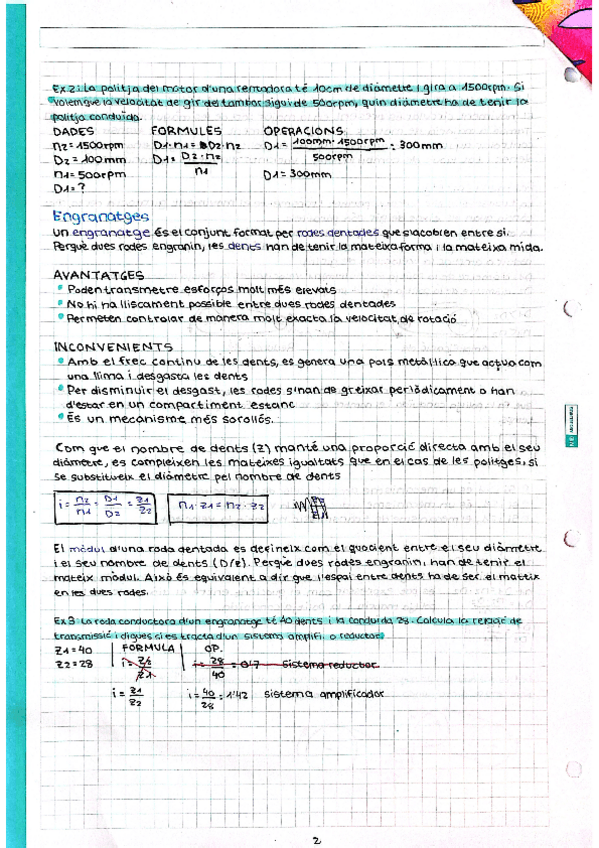 Ex2: La politja del motor d'una rentadora té 10cm de diàmetre i gira a 1500rpm. Si
volem que la velocitat de gir del tambor sigui de 500rpm, quin diàmetre ha de tenir la
politja conduïda.
DADES FORMULES OPERACIONS
n2 = 1500rpm D1·n1 = D2·n2 D1 = 100mm·1500rpm / 500rpm = 300mm
D2 = 100mm D1 = D2·n2 / n1
n1 = 500rpm D1 = 300mm
D1 = ?
Engranatges
Un engranatge és el conjunt format per rodes dentades que s'acoblen entre si.
Perquè dues rodes engranin, les dents han de tenir la mateixa forma i la mateixa mida.
AVANTATGES
• Poden transmetre esforços molt més elevats
• No hi ha lliscament possible entre dues rodes dentades
• Permeten controlar de manera molt exacta la velocitat de rotació
INCONVENIENTS
• Amb el frec continu de les dents, es genera una pols metàl·lica que actua com
una llima i desgasta les dents
• Per disminuir el desgast, les rodes s'han de greixar periòdicament o han
d'estar en un compartiment estanc
• És un mecanisme més sorollós.
Com que el nombre de dents (Z) manté una proporció directa amb el seu
diàmetre, es compleixen les mateixes igualtats que en el cas de les politges, si
se substitueix el diàmetre pel nombre de dents
i = n2/n1 = D1/D2 = Z1/Z2 n1·Z1 = n2·Z2
El mòdul d'una roda dentada es defineix com el quocient entre el seu diàmetre
i el seu nombre de dents (D/Z). Perquè dues rodes engranin, han de tenir el
mateix mòdul. Això és equivalent a dir que l'espai entre dents ha de ser el mateix
en les dues rodes.
Ex3: La roda conductora d'un engranatge té 40 dents i la conduïda 28. Calcula la relació de
transmissió i digues si es tracta d'un sistema amplifi. o reductor.
Z1 = 40 FORMULA OP.
Z2 = 28 i = Z2/Z1 i = 28/40 = 0'7 Sistema reductor.
i = Z1/Z2 i = 40/28 = 1'42 sistema amplificador
2